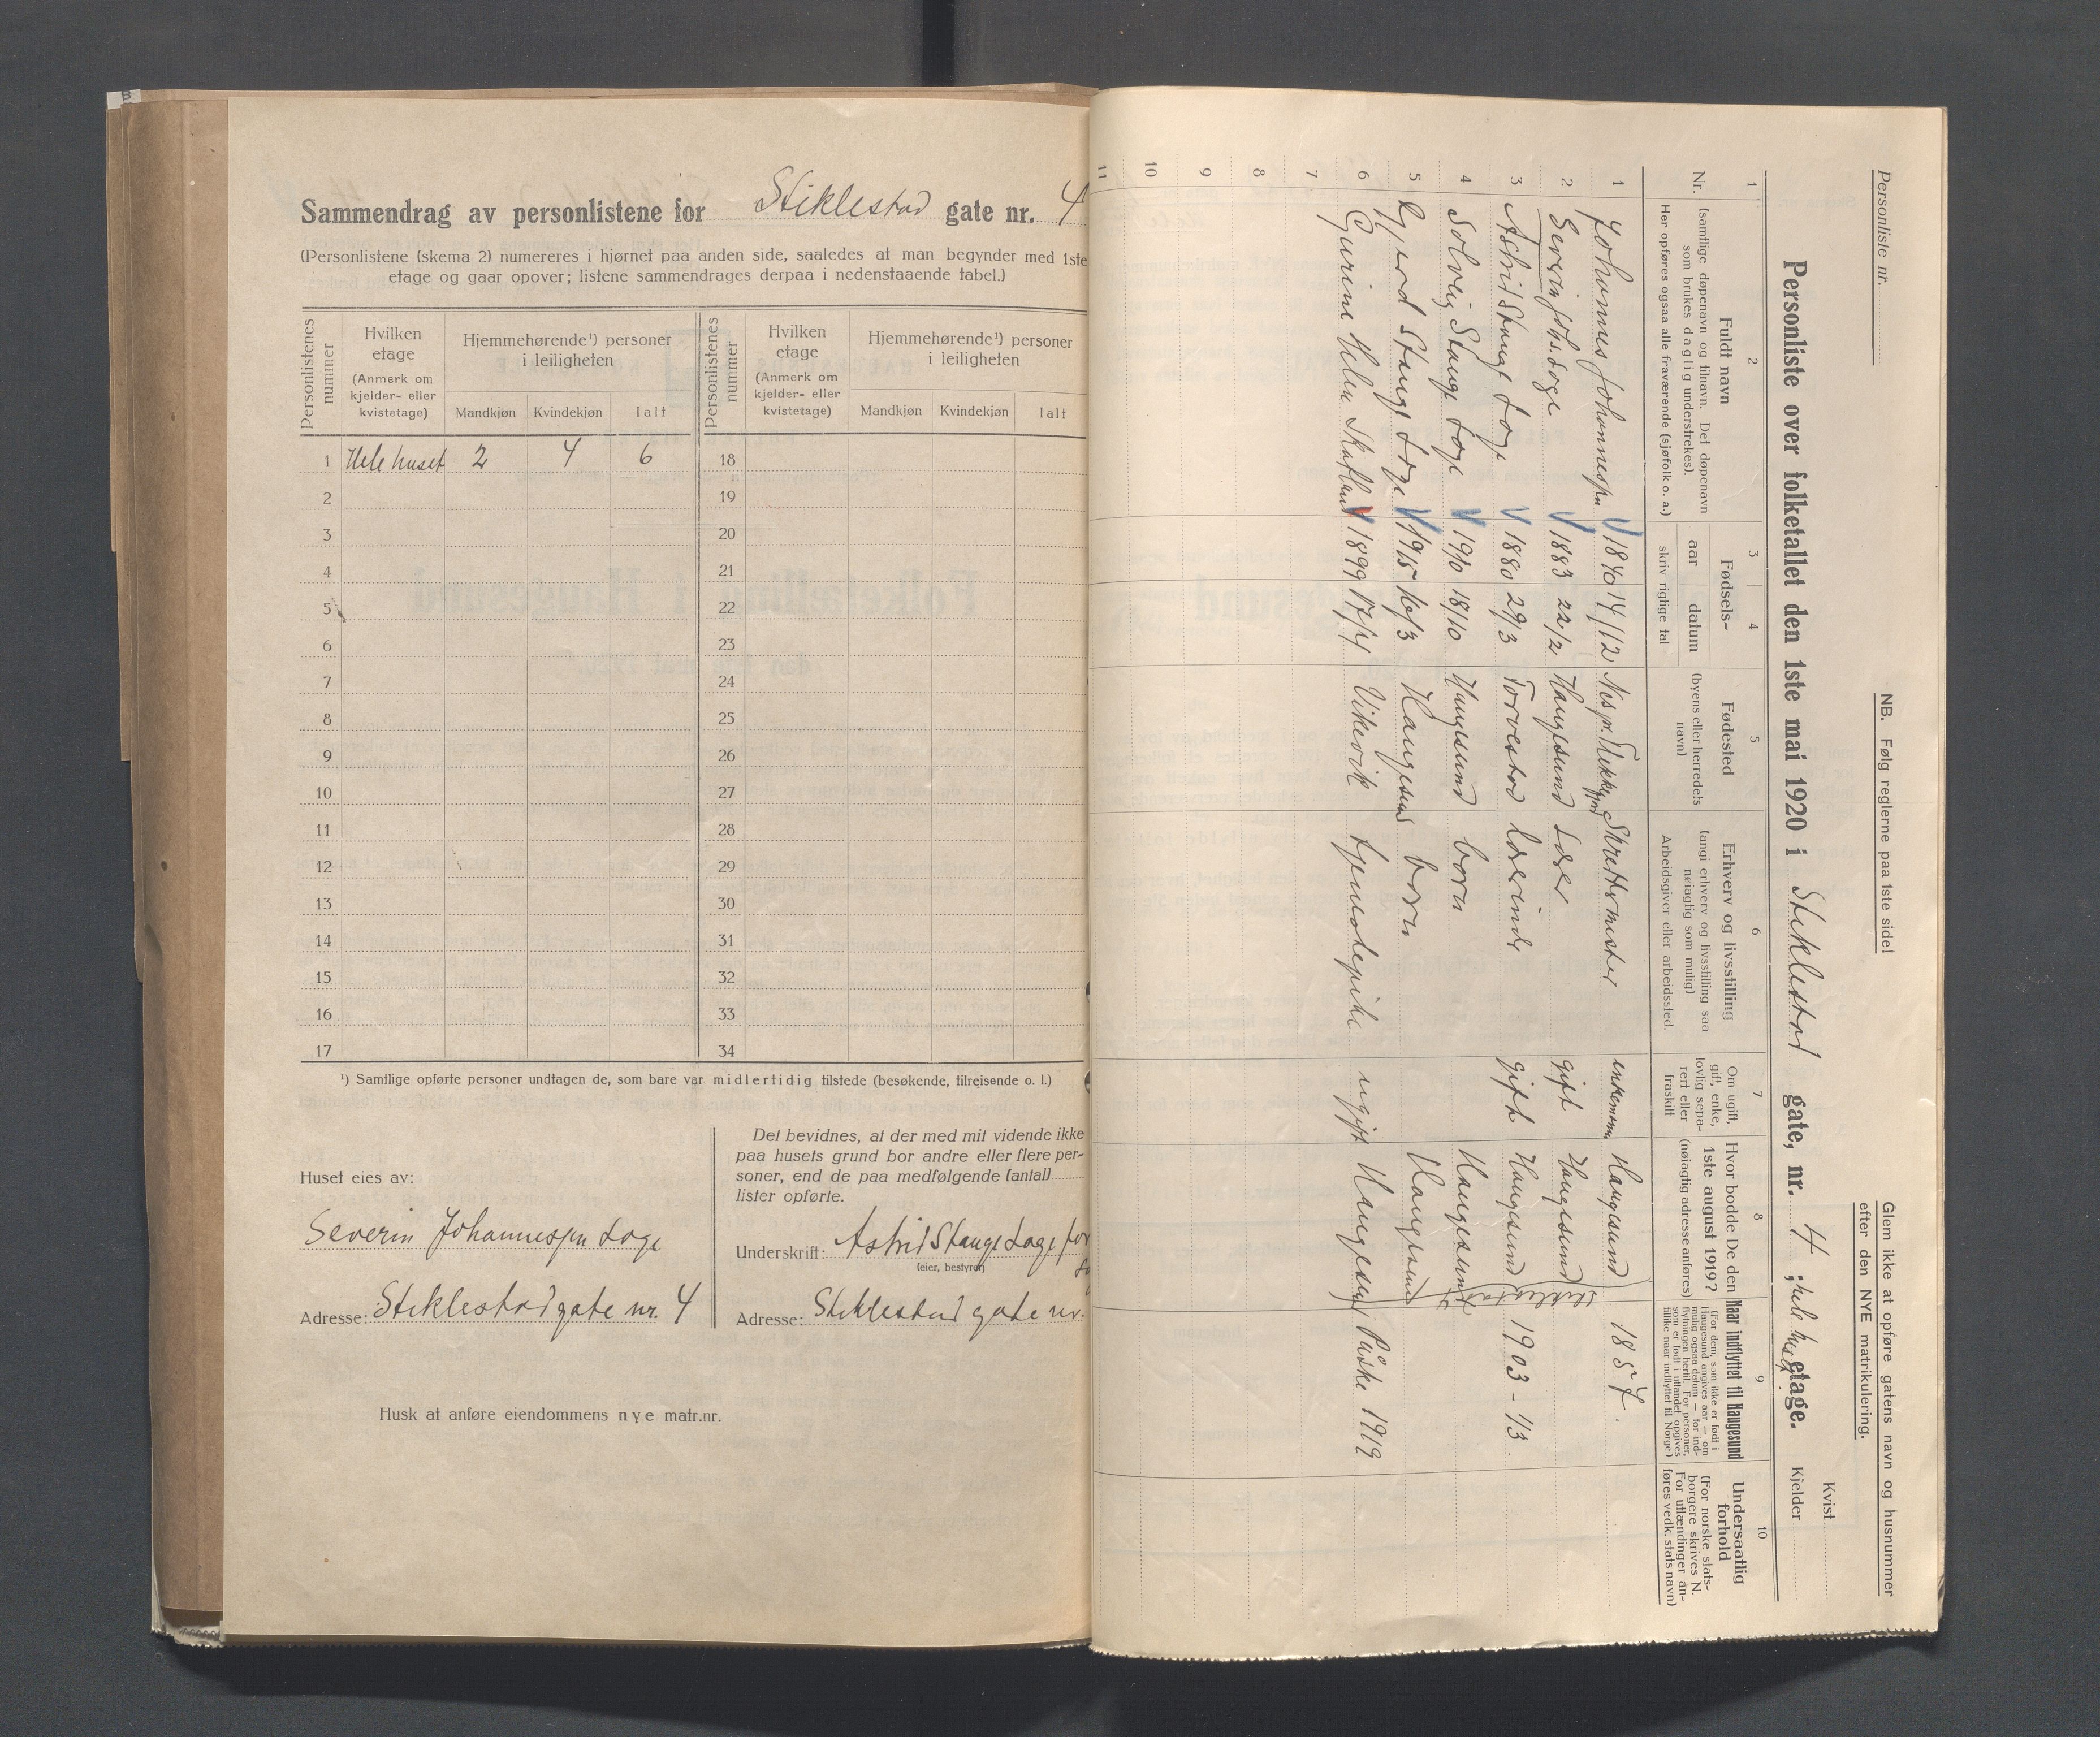 Sammendrag av personlistene for Stiklestad gate nr. 4
(Personlistene (skema 2) numereres i hjørnet paa anden side, saaledes at man begynder med 1ste
etage og gaar opover; listene sammendrages derpaa i nedenstaaende tabel.)
Personlistenes nummer
Hvilken etage
(Anmerk om kjelder- eller kvistetage)
Hjemmehørende¹) personer i leiligheten
Mandkjøn Kvindekjøn Ialt
Personlistenes nummer
Hvilken etage
(Anmerk om kjelder- eller kvistetage)
Hjemmehørende¹) personer i leiligheten
Mandkjøn Kvindekjøn Ialt
1 Hele huset 2 4 6 18
2 19
3 20
4 21
5 22
6 23
7 24
8 25
9 26
10 27
11 28
12 29
13 30
14 31
15 32
16 33
17 34
¹) Samtlige opførte personer undtagen de, som bare var midlertidig tilstede (besøkende, tilreisende o. l.)
Huset eies av:
Severin Johannessen Loge
Adresse: Stiklestadgate nr. 4
Det bevidnes, at der med mit vidende ikke
paa husets grund bor andre eller flere per-
soner, end de paa medfølgende (antal)
lister opførte.
Underskrift: Astrid Stange Loge for
(eier, bestyrer)
Adresse: Stiklestad gate nr.
Husk at anføre eiendommens nye matr.nr.
Personliste nr.
NB. Følg reglerne paa 1ste side!
Glem ikke at opføre gatens navn og husnummer
efter den NYE matrikulering.
Kvist
Personliste over folketallet den 1ste mai 1920 i Stiklestad gate, nr. 4 ; hele huset etage.
Kjelder
1 2 3 4 5 6 7 8 9 10
Nr.
Fuldt navn
(samtlige døpenavn og tilnavn. Det døpenavn
som brukes daglig understrekes).
Her opføres ogsaa alle fraværende (sjøfolk o. a.)
Fødsels-
aar datum
skriv riglige tal
Fødested
(byens eller herredets
navn)
Erhverv og livsstilling
(angi erhverv og livsstilling saa
nøiagtig som mulig)
Arbeidsgiver eller arbeidssted.
Om ugift,
gift, enke,
lovlig sepa-
rert eller
fraskilt
Hvor bodde De den
1ste august 1919?
(nøiagtig adresse anføres)
Naar indflyttet til Haugesund
(For dem, som ikke er født i
Haugesund angives aar — om
mulig ogsaa datum — for ind-
flytningen hertil. For personer,
som er født i utlandet opgives
tillike naar indflyttet til Norge)
Undersaatlig
forhold
(For norske stats-
borgere skrives N.
For utlændinger an-
føres vedk. stats navn)
1 Johannes Johannessen 1840 14/12 Nes pr. Flekkefjord Skreddermester enkemann Haugesund 1857.
2 Severin Johs. Loge 1883 22/2 Haugesund Lærer gift Haugesund
3 Astrid Stange Loge 1880 29/3 Torvestad lærerinde gift Haugesund 1903 - 1/3.
4 Solveig Stange Loge 1910 18/10 Haugesund barn Haugesund
5 Gjerd Stange Loge 1915 16/3 Haugesund barn Haugesund
Stiklestadgt 4
6 Gurine Helene Skatland 1899 17/4 Vikevik tjenestepike ugift Haugesund Påske 1919
7
8
9
10
11